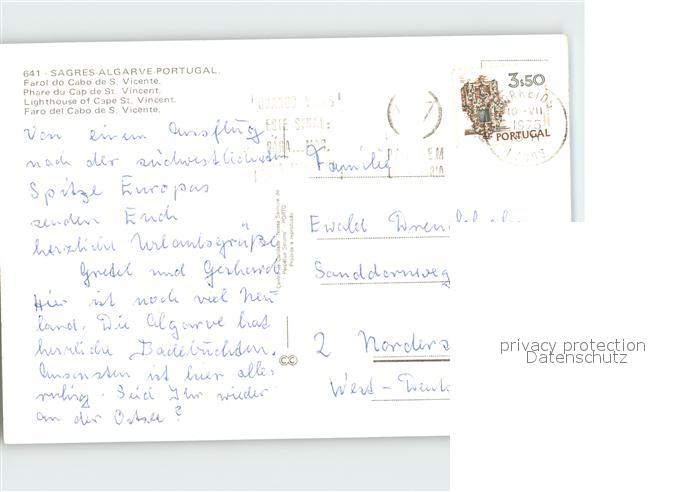 641 - SAGRES-ALGARVE-PORTUGAL.
Farol do Cabo de S. Vicente.
Phare du Cap de St. Vincent.
Lighthouse of Cape St. Vincent.
Faro del Cabo de S. Vicente.
Von einem Ausflug
nach der südwestlichsten
Spitze Europas
senden Euch
herzliche Urlaubsgrüße
Gretel und Gerhard
Hier ist noch viel Neu-
land. Die Algarve hat
herrliche Badebuchten.
Ansonsten ist hier alles
ruhig. Seid Ihr wieder
an der Ostsee?
3$50
PORTUGAL
10.-VII
1975
ESTE SINAL:
Familie
Ewald
Sanddornweg
2 Norders
West-Deut
privacy protection
Datenschutz